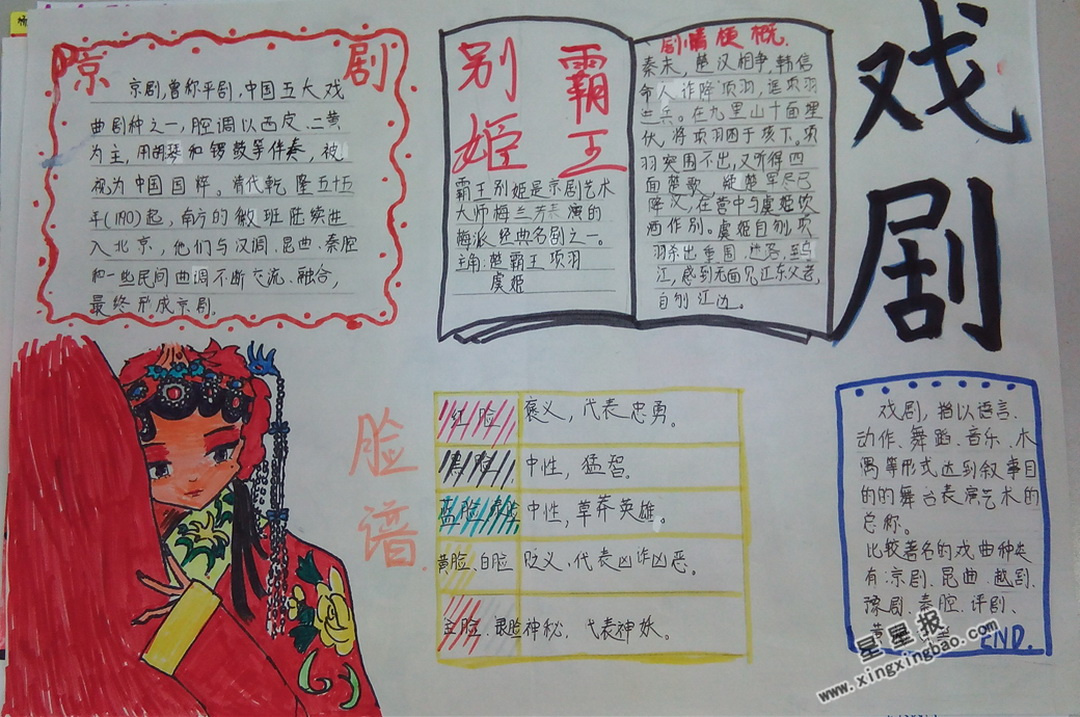 戏剧
京剧
京剧,曾称平剧,中国五大戏
曲剧种之一,腔调以西皮、二黄
为主,用胡琴和锣鼓等伴奏,被
视为中国国粹。清代乾隆五十五
年(1790)起,南方的徽班陆续进
入北京,他们与汉调、昆曲、秦腔
和一些民间曲调不断交流、融合,
最终形成京剧。
霸王
别姬
霸王别姬是京剧艺术
大师梅兰芳表演的
梅派经典名剧之一。
主角:楚霸王 项羽
虞姬
剧情梗概.
秦末,楚汉相争,韩信
命人诈降项羽,诓项羽
进兵。在九里山十面埋
伏,将项羽困于垓下。项
羽突围不出,又听得四
面楚歌,疑楚军尽已
降汉,在营中与虞姬饮
酒作别。虞姬自刎,项
羽杀出重围,迷路,至乌
江,感到无面见江东父老,
自刎江边。
脸谱.
红脸 褒义,代表忠勇。
黑脸 中性,猛智。
蓝脸 绿脸 中性,草莽英雄。
黄脸、白脸 贬义、代表凶诈凶恶。
金脸、银脸 神秘,代表神妖。
戏剧,指以语言、
动作、舞蹈、音乐、木
偶等形式达到叙事目
的的舞台表演艺术的
总称。
比较著名的戏曲种类
有:京剧、昆曲、越剧、
豫剧、秦腔、评剧、
END.
星星报
www.xingxingbao.com